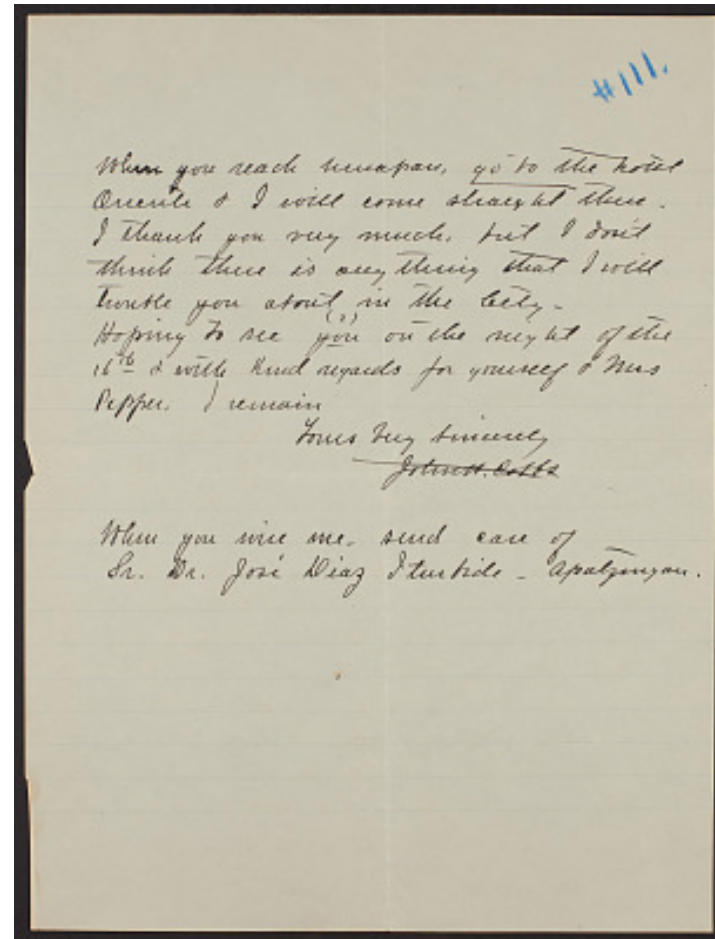 #111.
When you reach Uruapan, go to the hotel
Oriente & I will come straight there.
I thank you very much, but I don't
think there is any thing that I will
trouble you about in the City.
Hoping to see you (s) on the night of the
16th & with kind regards for yourself & Mrs
Pepper. I remain
Yours Very Sincerely
John H.
When you wire me. send care of
Sr. Dr. José Diaz Iturbide - Apatzingan.